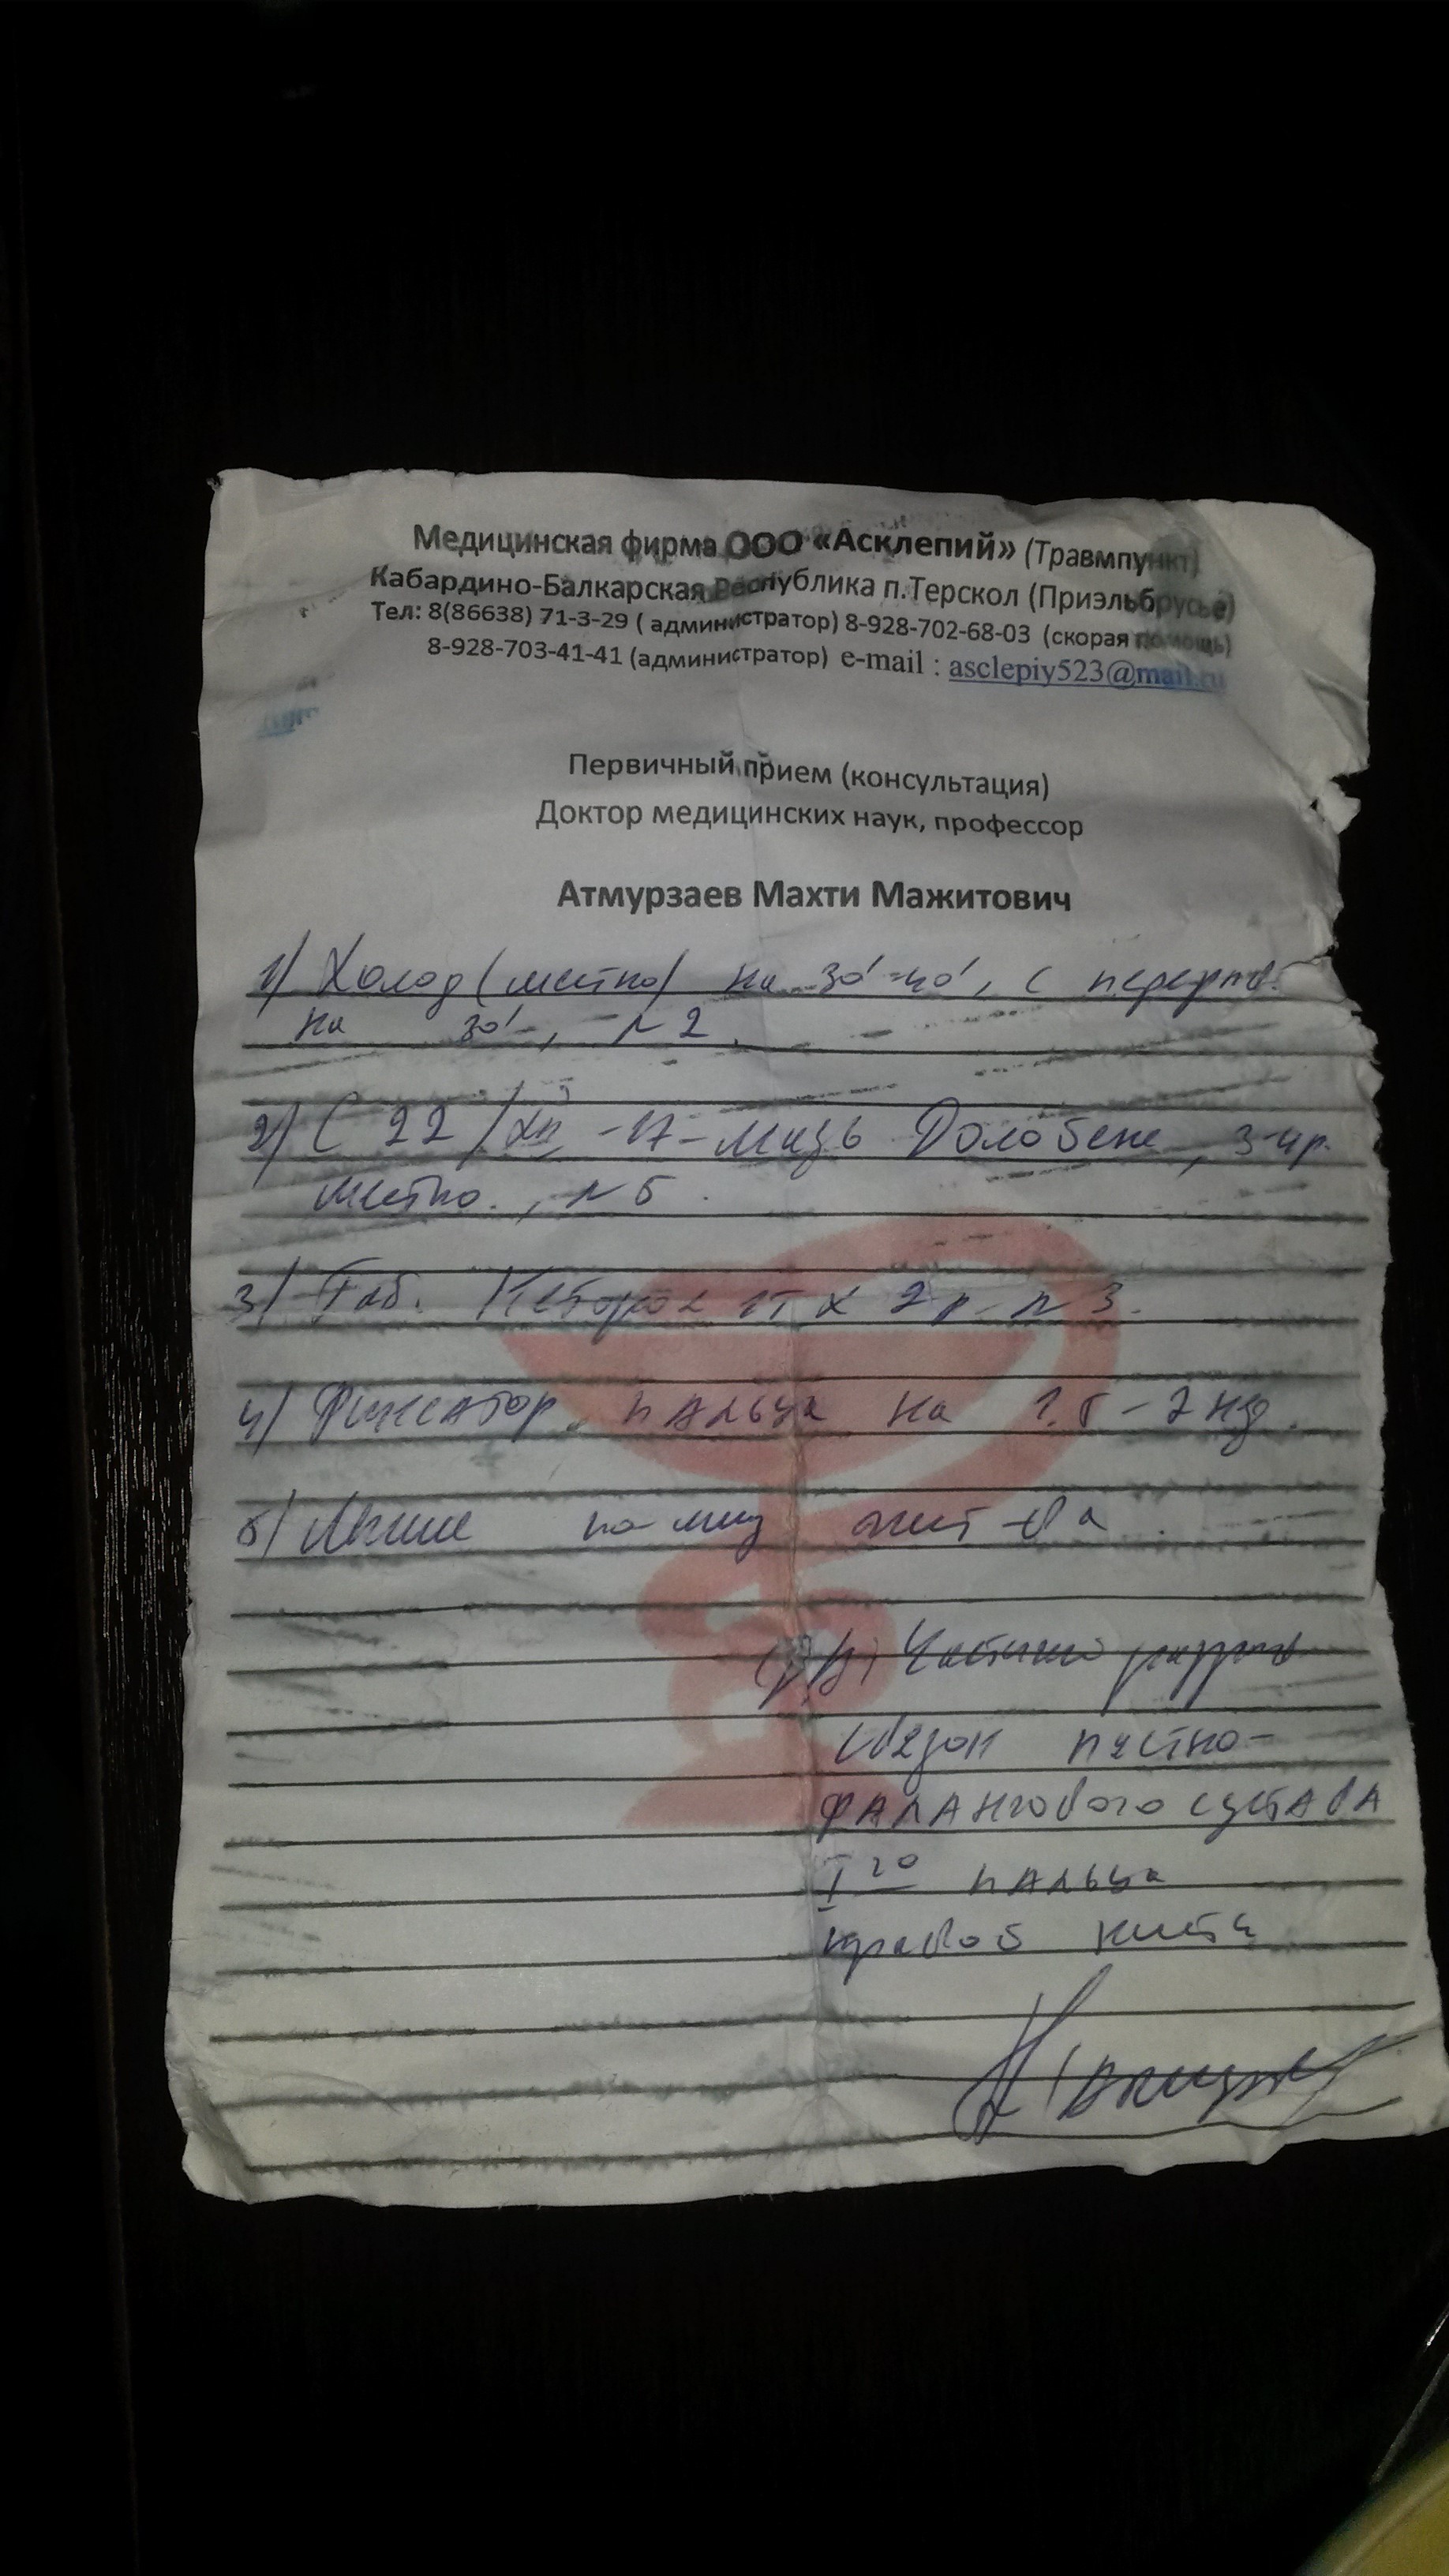 Медицинская фирма ООО «Асклепий» (Травмпункт)
Кабардино-Балкарская Республика п.Терскол (Приэльбрусье)
Тел: 8(86638) 71-3-29 ( администратор) 8-928-702-68-03 (скорая помощь)
8-928-703-41-41 (администратор) e-mail : asclepiy523@mail.ru
Первичный прием (консультация)
Доктор медицинских наук, профессор
Атмурзаев Махти Мажитович
1) Холод (местно) на 30'-40', с перерыв.
на 30', N 2.
2) С 22/XII -17- мазь Долобене, 3-4 р.
местно., N 5.
3) Таб. Кеторол 1т х 2 р. N 3.
4) Фиксатор пальца на 1.5 - 2 нед.
5) по м/ж
Частичн разрыв
связок пястно-
фалангового сустава
I го пальца
правой кисти